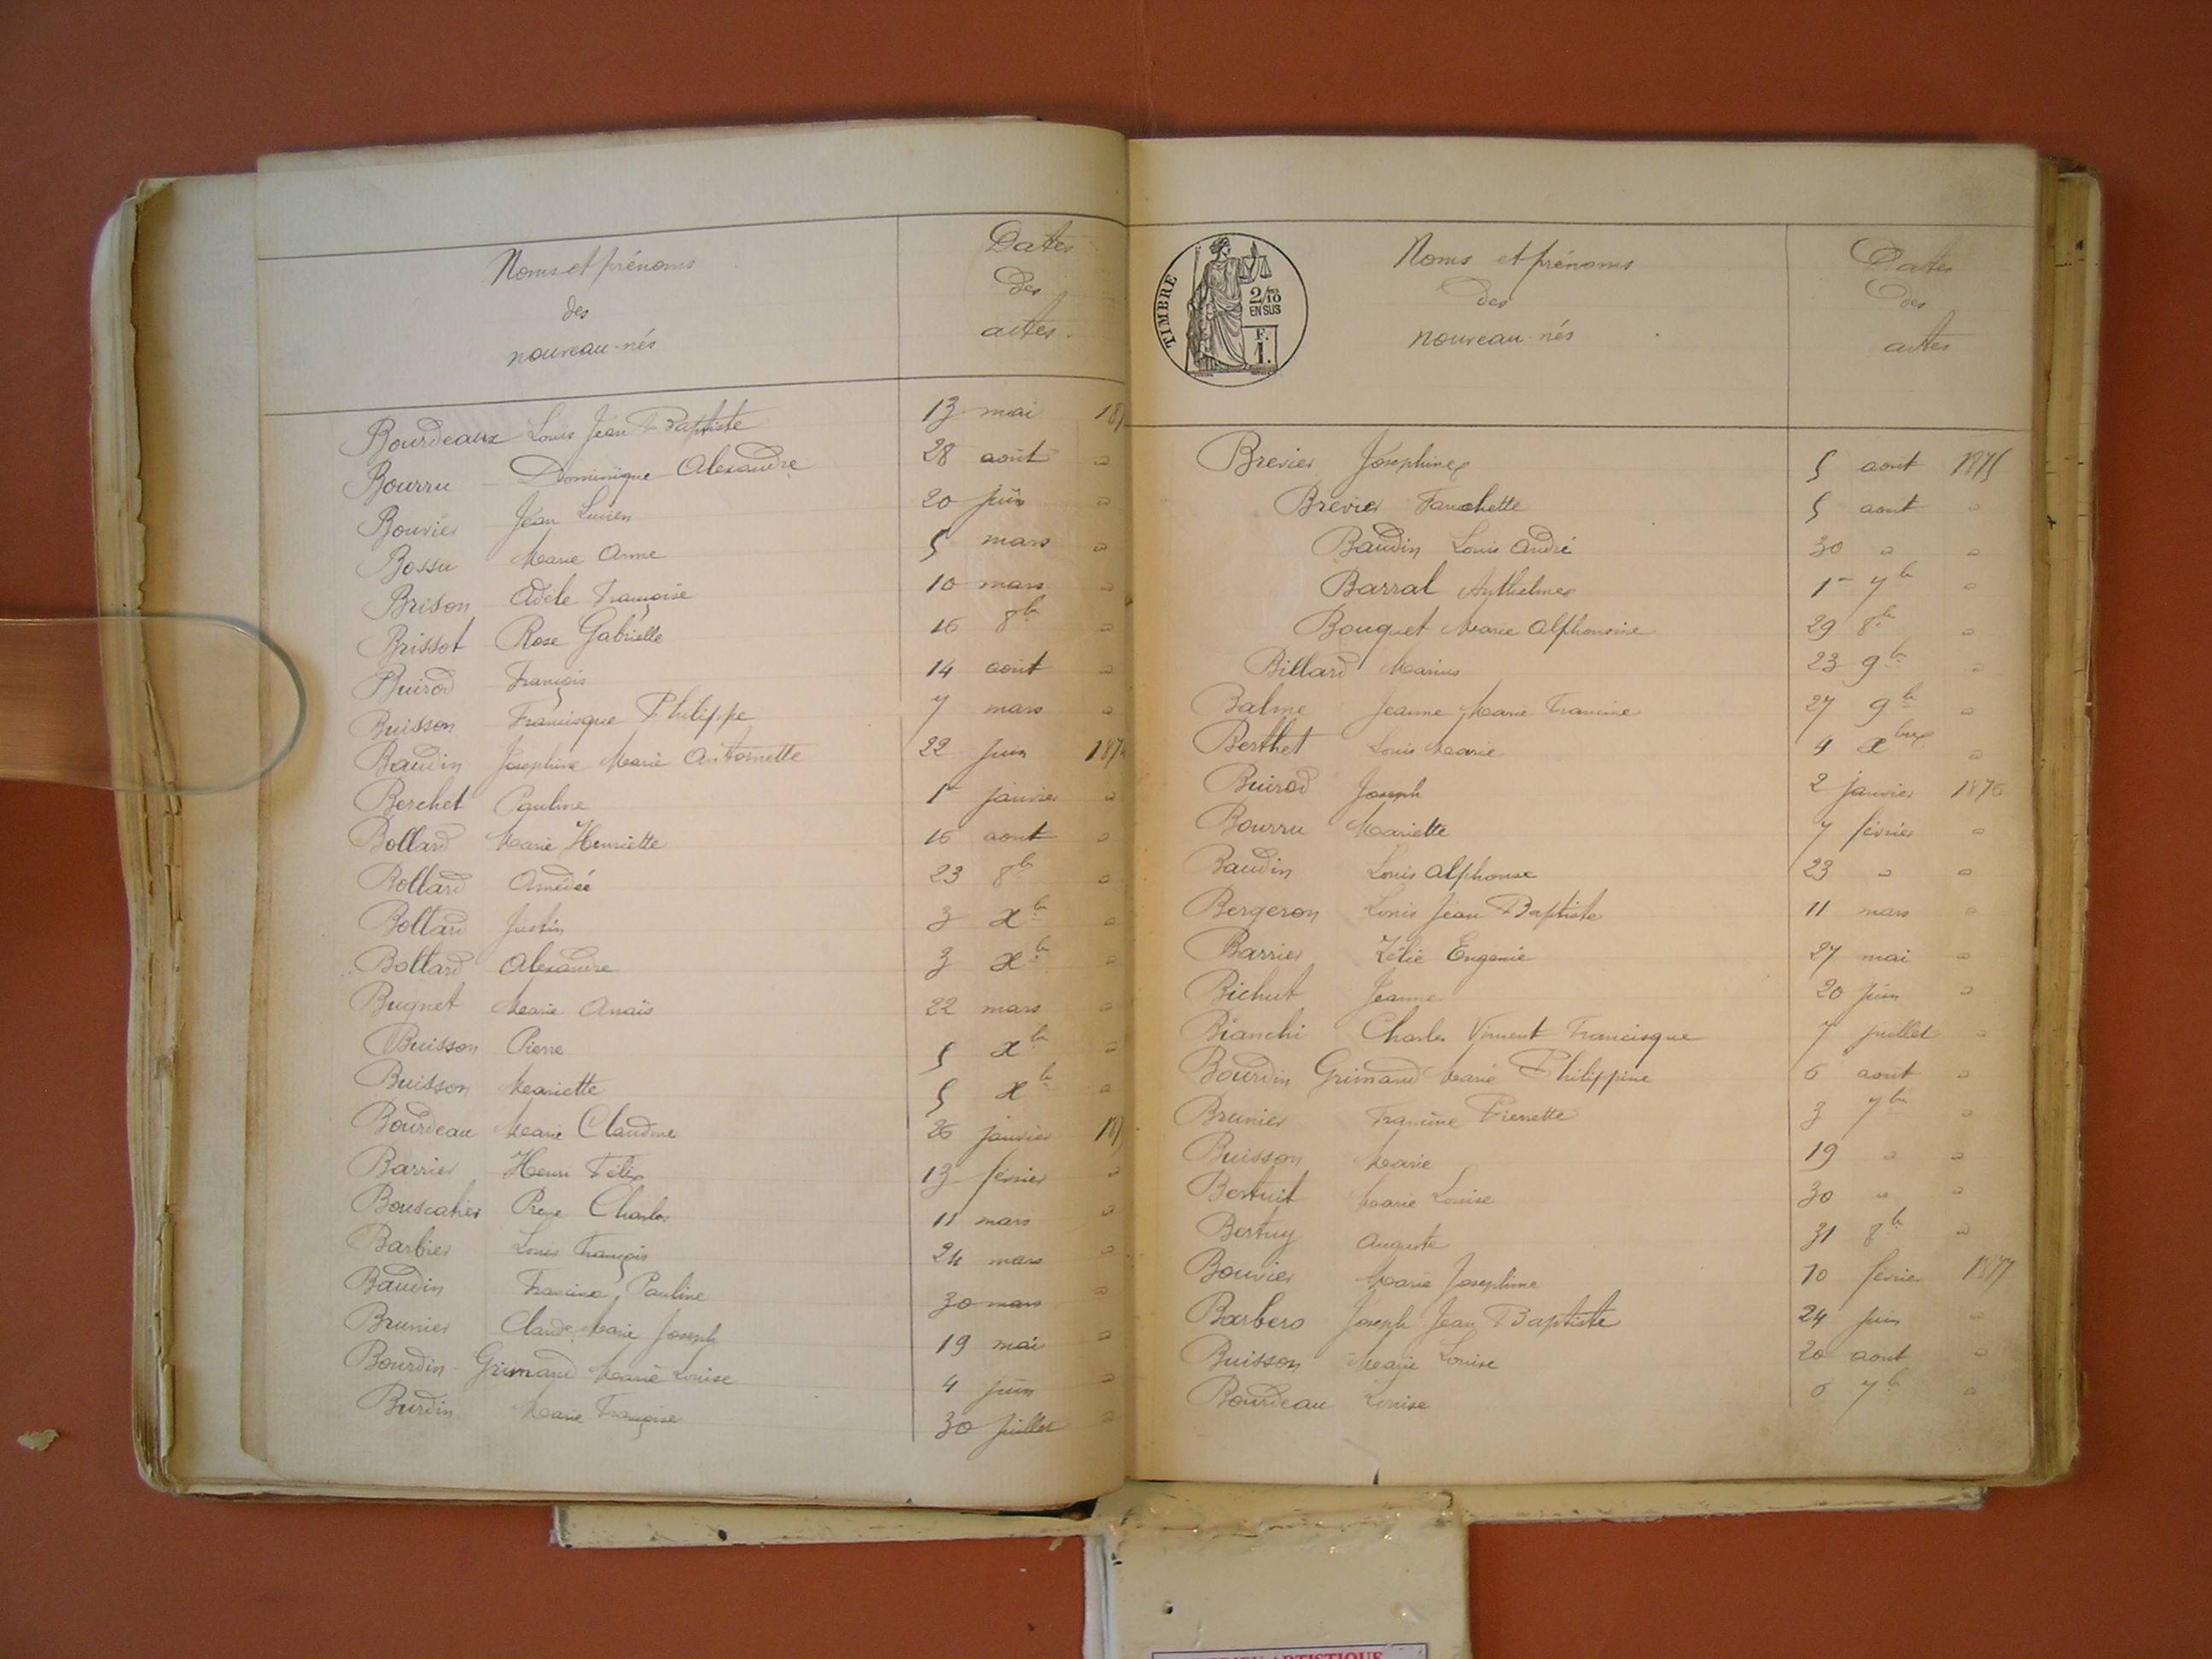 Noms et prénoms
des
nouveau-nés
Dates
des
actes.
Bourdeaux Louis Jean Baptiste 13 mai 187
Bourru Dominique Alexandre 28 août "
Bouvier Jean Lucien 20 juin "
Bossu Marie Anne 5 mars "
Brison Adèle Françoise 10 mars "
Brissot Rose Gabrielle 16 8bre "
Buirod François 14 août "
Buisson Francisque Philippe 7 mars "
Baudin Joséphine Marie Antoinette 22 juin 187
Berchet Pauline 1er janvier "
Bollard Marie Henriette 16 aout "
Bollard Amédée 23 8bre "
Bollard Justin 3 Xbre "
Bollard Alexandre 3 Xbre "
Bugnet Marie Anaïs 22 mars "
Buisson Pierre 5 Xbre "
Buisson Mariette 5 Xbre "
Bourdeau Marie Claudine 26 janvier 187
Barrier Henri Félix 13 février "
Charles 11 mars "
Barbier Louis François 24 mars "
Baudin Francine Pauline 30 mars "
Brunier Claude Marie Joseph 19 mai "
Bourdin-Grimand Marie Louise 4 juin "
Burdin Marie Françoise 30 juillet "
TIMBRE
2/10
EN SUS
F.
1.
Noms et prénoms
des
nouveau-nés
Dates
des
actes
Brevier Josephine 5 aout 1875
Brevier Fanchette 5 aout "
Baudin Louis André 30 " "
Barral Anthelme 1er 7bre "
Bouquet Marie Alphonsine 29 8bre "
Billard Marius 23 9bre "
Balme Jeanne Marie Francine 27 9bre "
Berthet Louis Marie 4 Xbre "
Buirod Joseph 2 janvier 1876
Bourru Mariette 7 février "
Baudin Louis Alphonse 23 " "
Bergeron Louis Jean Baptiste 11 mars "
Barrier Zélie Eugénie 27 mai "
Bichut Jeanne 20 juin "
Bianchi Charles Vincent Francisque 7 juillet "
Bourdin Grimand Marie Philippine 6 aout "
Brunier Francine Pierrette 3 7bre "
Buisson Marie 19 " "
Bertuit Marie Louise 30 " "
Bertuy Auguste 31 8bre "
Bouvier Marie Joséphine 10 février 1877
Barbero Joseph Jean Baptiste 24 juin "
Buisson Marie Louise 20 aout "
Bourdeau Louise 6 7bre "
ARTISTIQUE